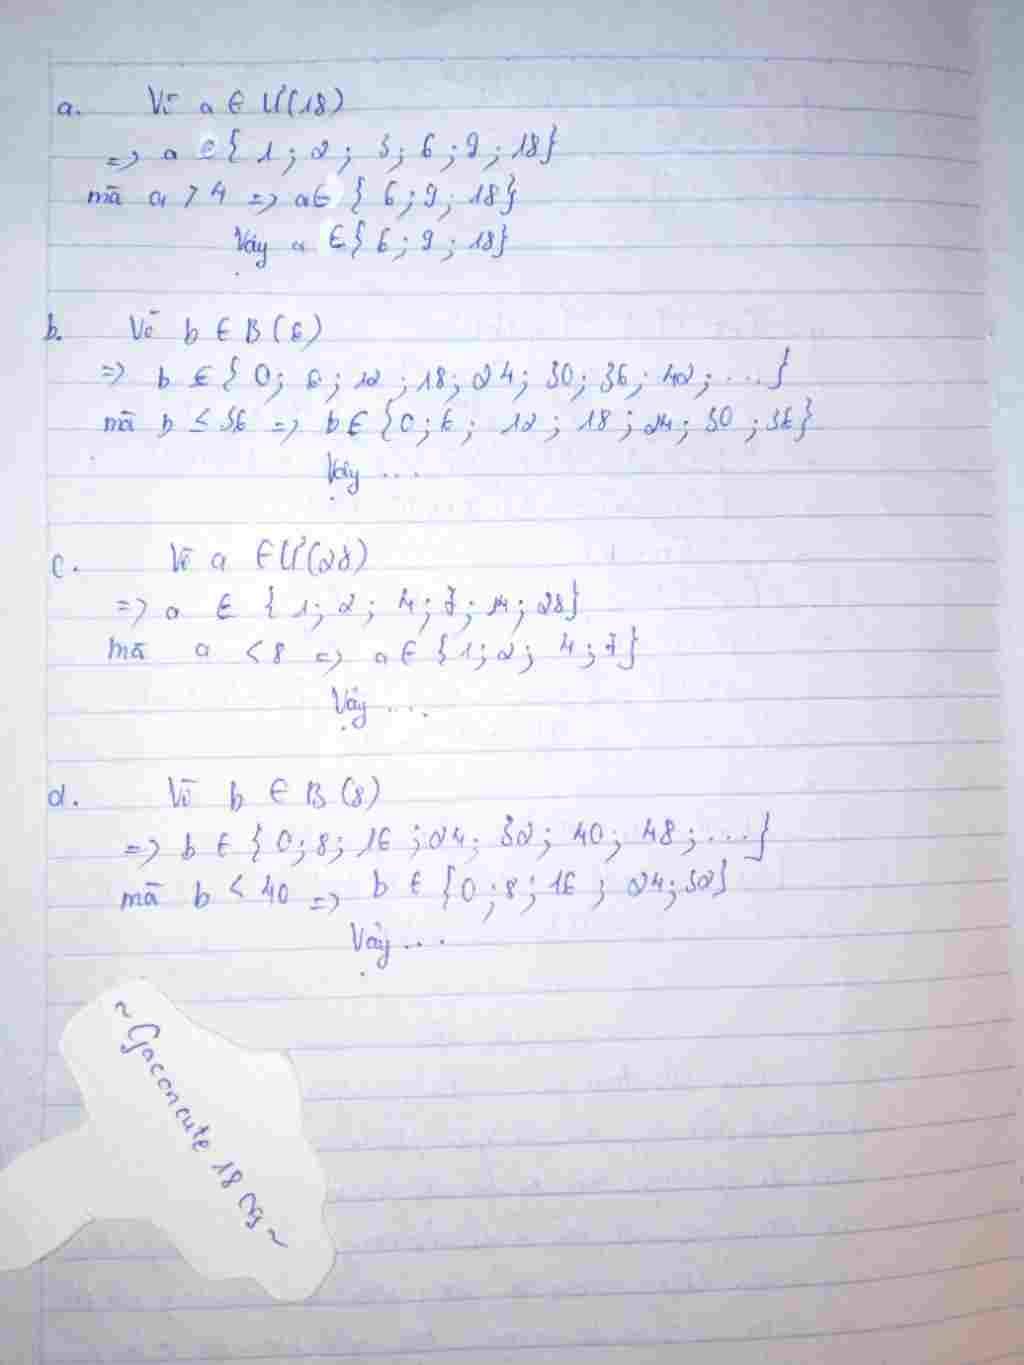 a. Vì a ∈ Ư(18)
=> a ∈ { 1 ; 2 ; 3 ; 6 ; 9 ; 18}
mà a > 4 => a ∈ { 6 ; 9 ; 18}
Vậy a ∈ { 6 ; 9 ; 18}
b. Vì b ∈ B (6)
=> b ∈ { 0 ; 6 ; 12 ; 18 ; 24 ; 30 ; 36 ; 42 ; ... }
mà b ≤ 36 => b ∈ {0 ; 6 ; 12 ; 18 ; 24 ; 30 ; 36}
Vậy ...
c. Vì a ∈ Ư(28)
=> a ∈ { 1 ; 2 ; 4 ; 7 ; 14 ; 28}
mà a < 8 => a ∈ { 1 ; 2 ; 4 ; 7}
Vậy ...
d. Vì b ∈ B (8)
=> b ∈ { 0 ; 8 ; 16 ; 24 ; 32 ; 40 ; 48 ; ... }
mà b < 40 => b ∈ {0 ; 8 ; 16 ; 24 ; 32}
Vậy ...
~ Gaconcute 18 ~